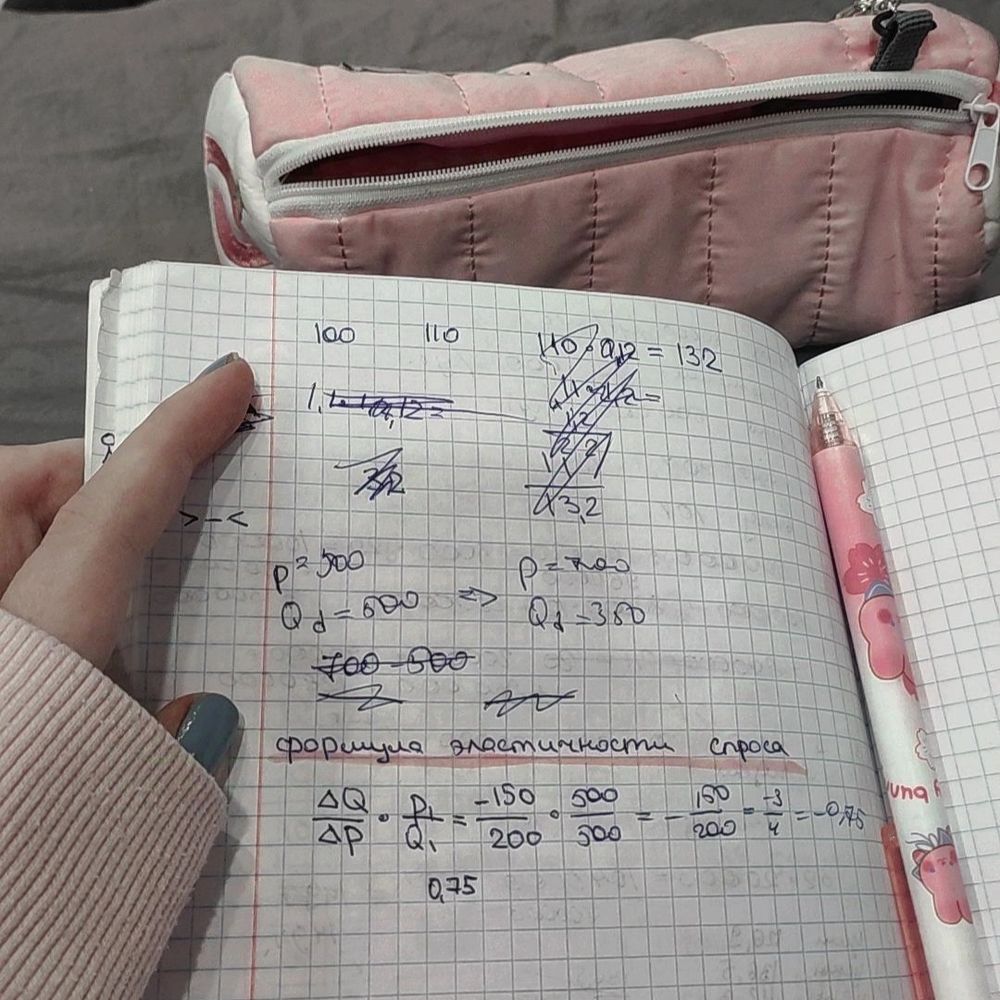 100 110 110 · 0,12 = 132
13,2
> – <
p = 500 ⇒ p = 700
Qd = 500 Qd = 350
700 - 500
формула эластичности спроса
ΔQ/ΔP · P1/Q1 = -150/200 · 500/500 = - 150/200 = -3/4 = -0,75
0,75